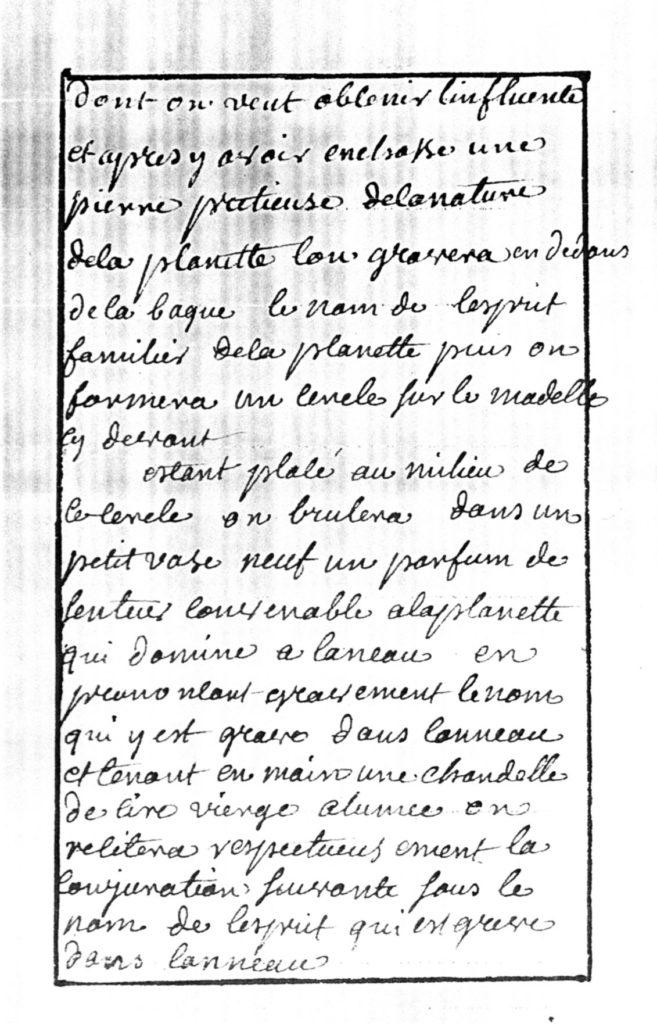 dont on veut obtenir linfluente
et apres y avoir enchasse une
pierre pretieuse delanature
dela planette lon gravera en dedans
de la bague le nom de lesprit
familier dela planette puis on
formera un cercle sur le madelle
cy devant
estant placé au milieu de
ce cercle on brulera dans un
petit vase neuf un parfum de
senteur convenable alaplanette
qui domine a laneau en
prononcant gravement lenom
qui y est grave dans lanneau
et tenant en main une chandelle
de cire vierge alumee on
recitera respectueus ement la
conjuration suivante sous le
nom de lesprit qui est grave
dans lanneau